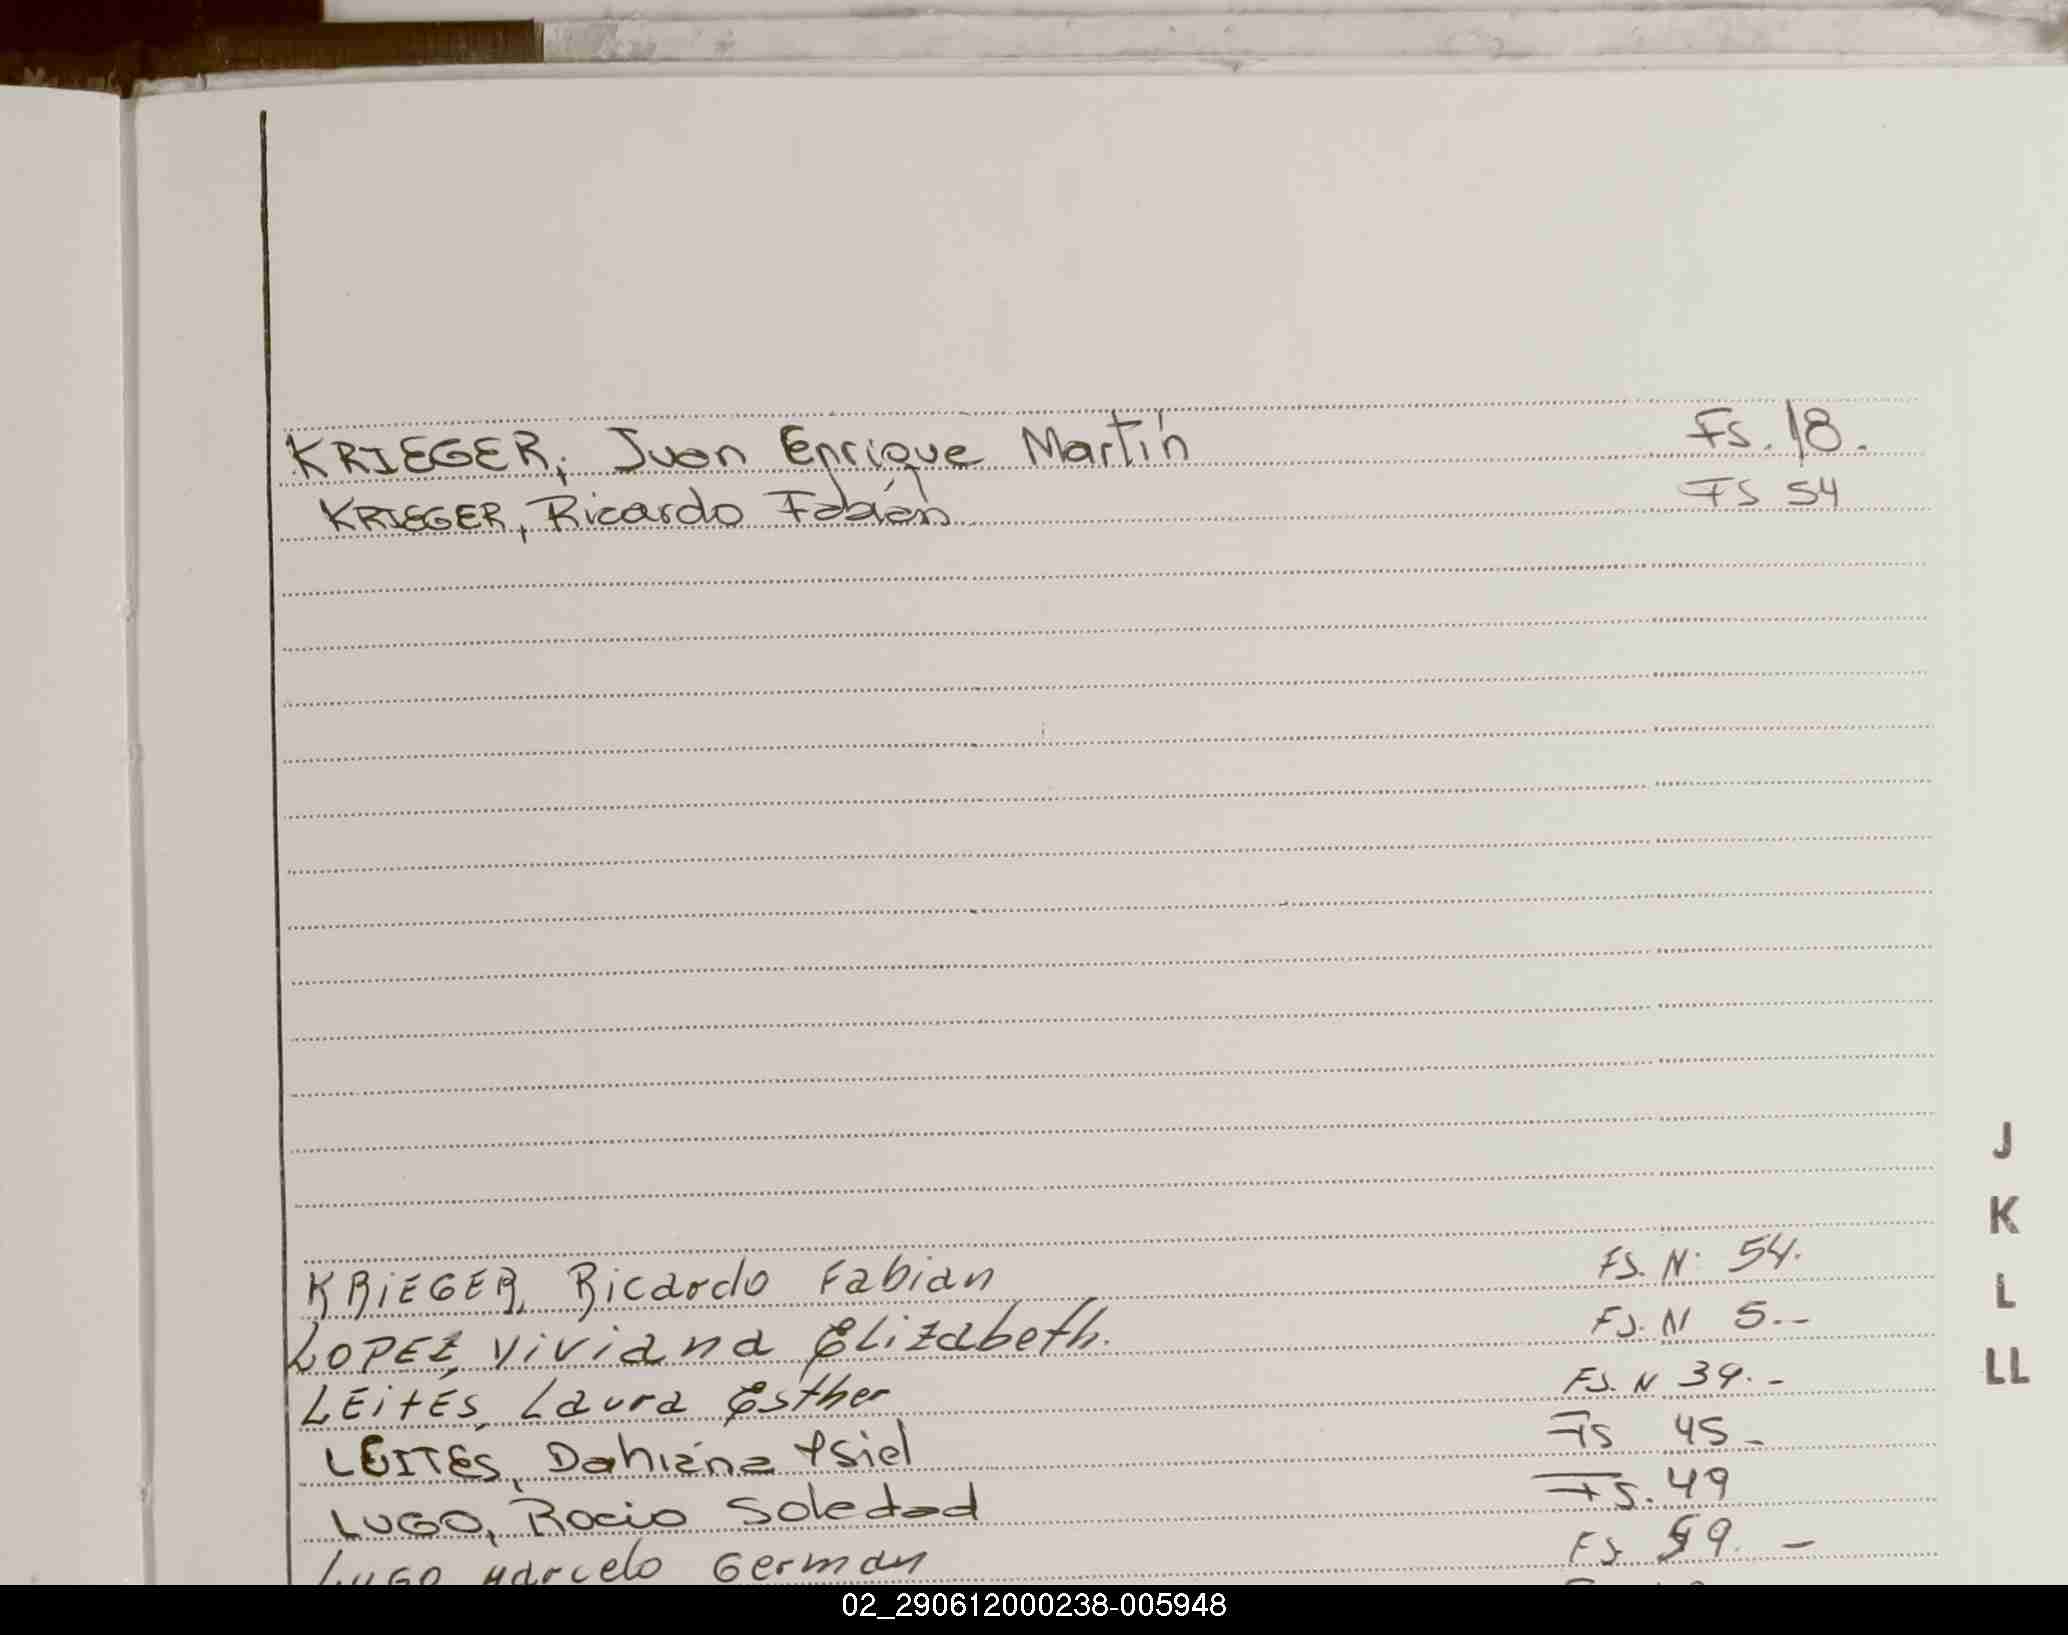 KRIEGER, Juan Enrique Martín Fs. 18.
KRIEGER, Ricardo Fabián Fs 54
J
K
L
LL
KRiEGER, Ricardo Fabian FS. N: 54.
LOPEZ, Viviana Elizabeth. FS. N 5.-
LEitES, Laura Esther FS. N 39.-
LEITES, Dahiana Ysiel Fs 45-
LUGO, Rocio Soledad Fs. 49
LUGO Marcelo German FS 59. -
02_290612000238-005948